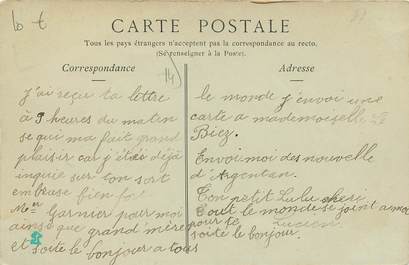 lo t
14
CARTE POSTALE
Tous les pays étrangers n'acceptent pas la correspondance au recto.
(Se renseigner à la Poste).
Correspondance
j'ai reçu ta lettre
à 9 heures du matin
se qui ma fait grand
plaisir car j'étais déjà
inquie sur ton sort
embrase bien for
Garnier pour moi
ainsi que grand mère
et soite le bonjour a tous
Adresse
le monde j'envoi une
carte a mademoiselle
Biez.
Envoi moi des nouvelle
d'Argentan.
Ton petit Lulu cheri
Tout le monde se joint a moi
pour te Lucien
soite le bonjour.